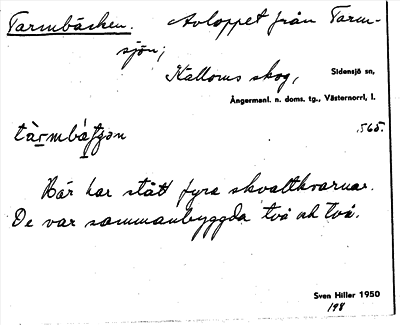 Tarmbäcken. Avloppet från Tarm-
sjön;
Kalloms skog, Sidensjö sn,
Ångermanl. n. doms. tg., Västernorrl. l.
565.
Här har stått fyra skvaltkvarnar.
De var sammanbyggda två och två.
Sven Hiller 1950
198